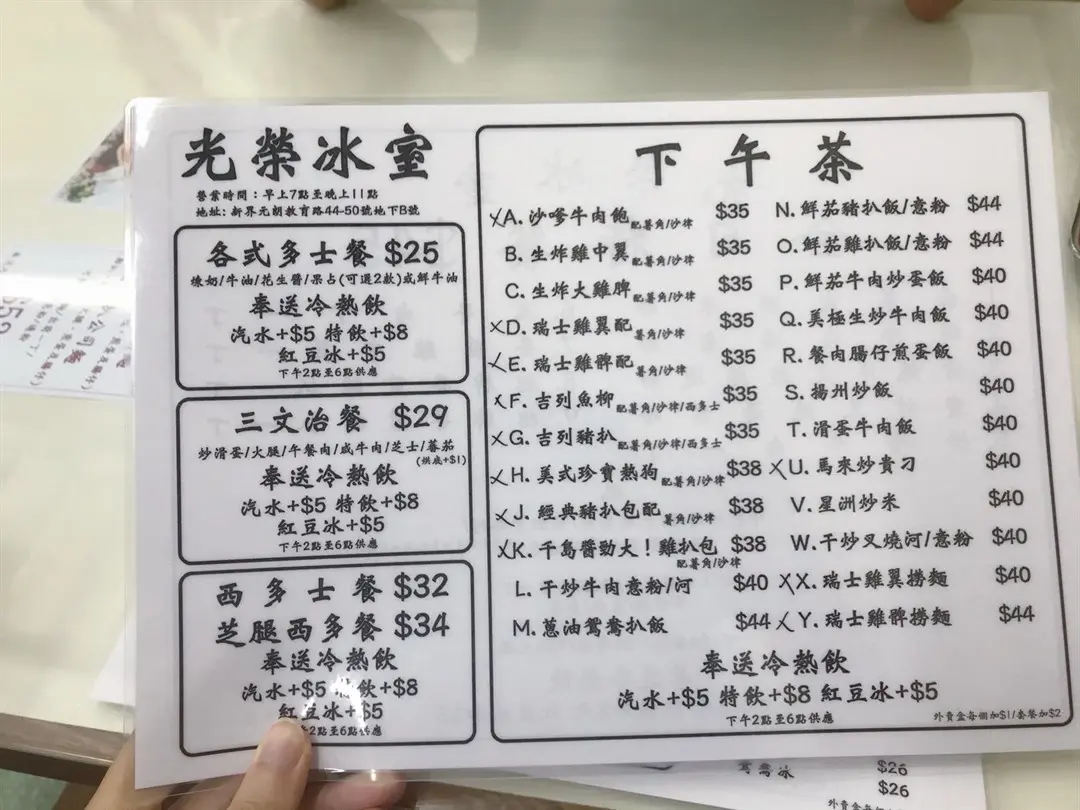 光榮冰室
營業時間：早上7點至晚上11點
地址: 新界元朗教育路44-50號地下B號
各式多士餐 $25
煉奶/牛油/花生醬/果占(可選2款)或鮮牛油
奉送冷熱飲
汽水+$5 特飲+$8
紅豆冰+$5
下午2點至6點供應
三文治餐 $29
炒滑蛋/火腿/午餐肉/咸牛肉/芝士/蕃茄
(烘底+$1)
奉送冷熱飲
汽水+$5 特飲+$8
紅豆冰+$5
下午2點至6點供應
西多士餐 $32
芝腿西多餐 $34
奉送冷熱飲
汽水+$5 飲+$8
紅豆冰+$5
2點至6點供應
下午茶
A. 沙嗲牛肉飽 配薯角/沙律 $35
B. 生炸雞中翼 配薯角/沙律 $35
C. 生炸大雞脾 配薯角/沙律 $35
D. 瑞士雞翼配 薯角/沙律 $35
E. 瑞士雞髀配 薯角/沙律 $35
F. 吉列魚柳 配薯角/沙律/西多士 $35
G. 吉列豬扒 配薯角/沙律/西多士 $35
H. 美式珍寶熱狗 配薯角/沙律 $38
J. 經典豬扒包配 薯角/沙律 $38
K. 千島醬勁大！雞扒包 $38
配薯角/沙律
L. 干炒牛肉意粉/河 $40
M. 蔥油鴛鴦扒飯 $44
N. 鮮茄豬扒飯/意粉 $44
O. 鮮茄雞扒飯/意粉 $44
P. 鮮茄牛肉炒蛋飯 $40
Q. 美極生炒牛肉飯 $40
R. 餐肉腸仔煎蛋飯 $40
S. 揚州炒飯 $40
T. 滑蛋牛肉飯 $40
U. 馬來炒貴刁 $40
V. 星洲炒米 $40
W. 干炒叉燒河/意粉 $40
X. 瑞士雞翼撈麵 $40
Y. 瑞士雞髀撈麵 $44
奉送冷熱飲
汽水+$5 特飲+$8 紅豆冰+$5
下午2點至6點供應
外賣盒每個加$1/套餐加$2
鴛鴦冰 $26
$26
外賣盒每個加$1
公司麵